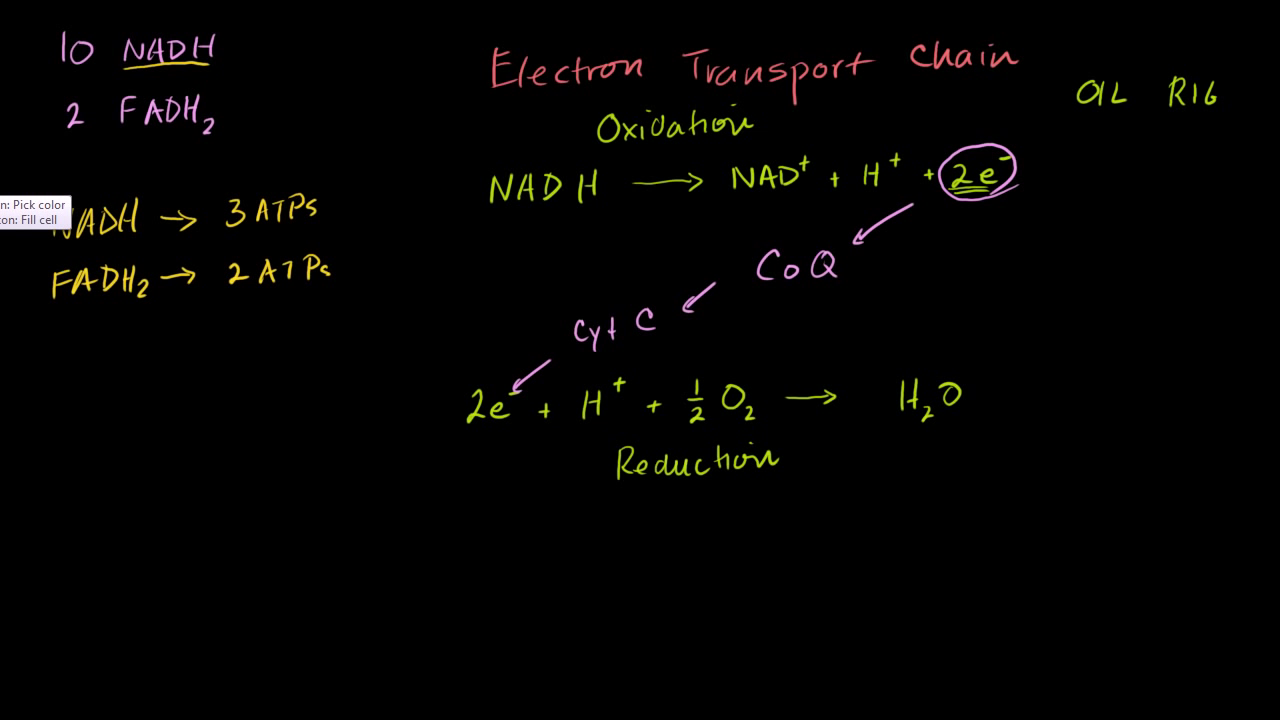 10 NADH
2 FADH₂
n: Pick color
con: Fill cell
NADH → 3 ATPs
FADH₂ → 2 ATPs
Electron Transport Chain
OIL RIG
Oxidation
NADH → NAD⁺ + H⁺ + 2e⁻
CoQ
Cyt C
2e⁻ + H⁺ + ½ O₂ → H₂O
Reduction